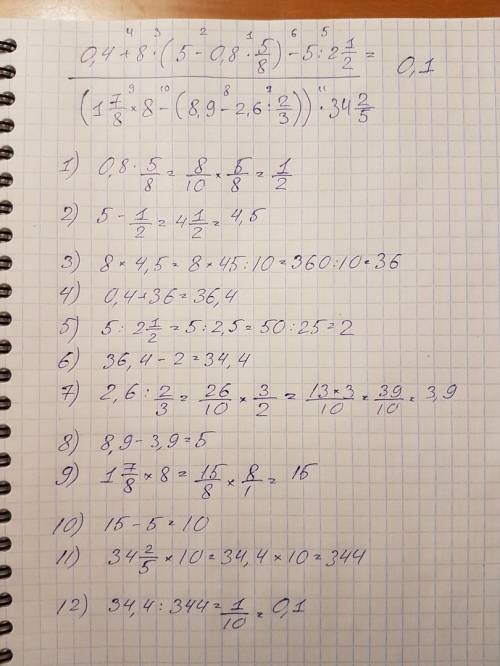 4 3 2 1 6 5
0,4 + 8 · (5 - 0,8 · 5/8) - 5 : 2 1/2 =
0,1
9 10 8 7 11
(1 7/8 × 8 - (8,9 - 2,6 : 2/3)) · 34 2/5
1) 0,8 · 5/8 = 8/10 × 5/8 = 1/2
2) 5 - 1/2 = 4 1/2 = 4,5
3) 8 × 4,5 = 8 × 45 : 10 = 360 : 10 = 36
4) 0,4 + 36 = 36,4
5) 5 : 2 1/2 = 5 : 2,5 = 50 : 25 = 2
6) 36,4 - 2 = 34,4
7) 2,6 : 2/3 = 26/10 × 3/2 = 13×3/10 = 39/10 = 3,9
8) 8,9 - 3,9 = 5
9) 1 7/8 × 8 = 15/8 × 8/1 = 15
10) 15 - 5 = 10
11) 34 2/5 × 10 = 34,4 × 10 = 344
12) 34,4 : 344 = 1/10 = 0,1